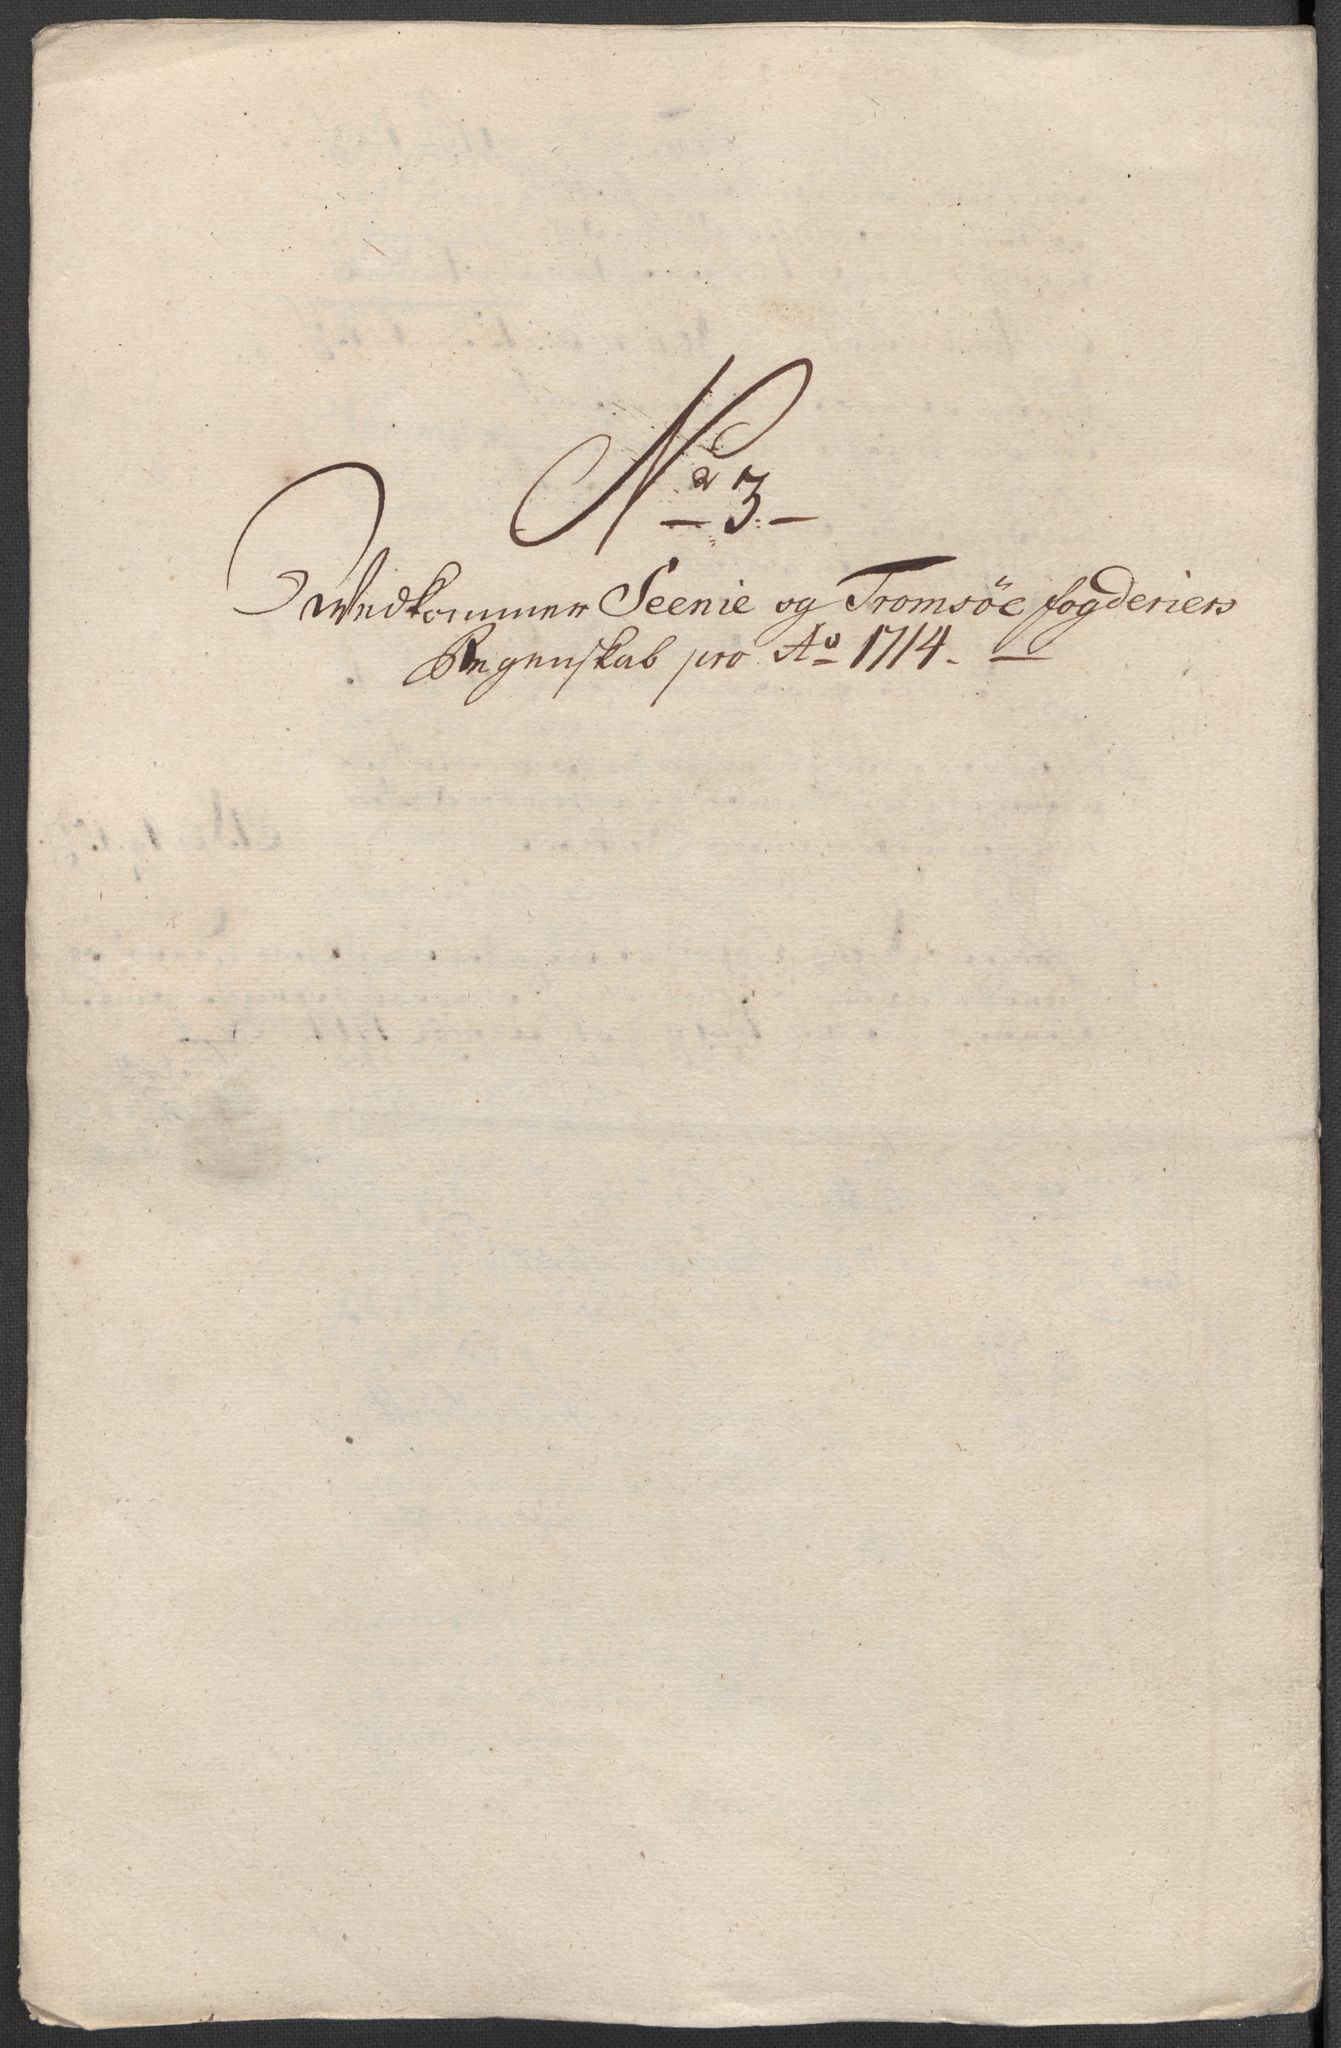 No 3.
Wedkommer Seenie og Tromsöe fogderiers
Regenskab pro Ao 1714.